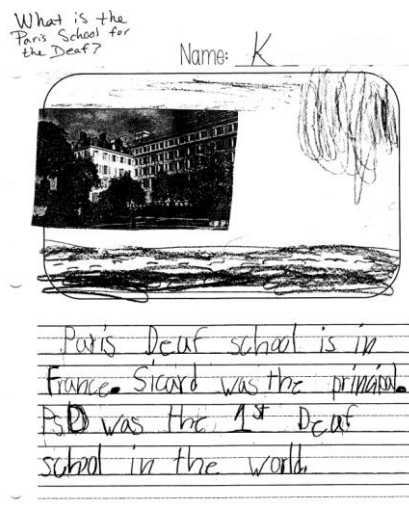 What is the
Paris School for
the Deaf?
Name: K
Paris Deaf school is in
France. Sicard was the principal.
PSD was the 1st Deaf
school in the world.